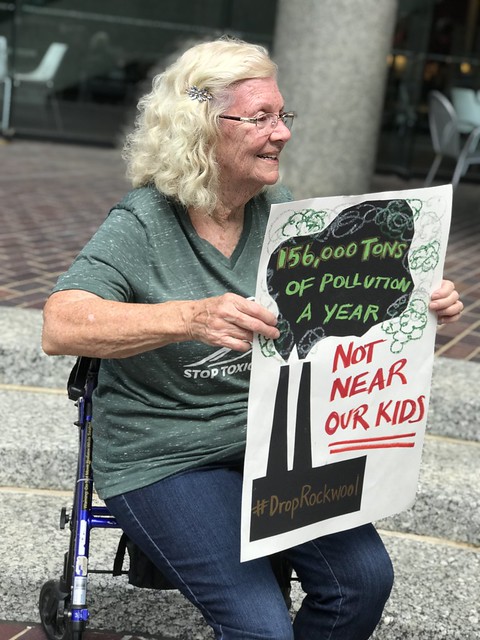 156,000 TONS
OF POLLUTION
A YEAR
NOT
NEAR
OUR KIDS
#DropRockwool
STOP TOXIC